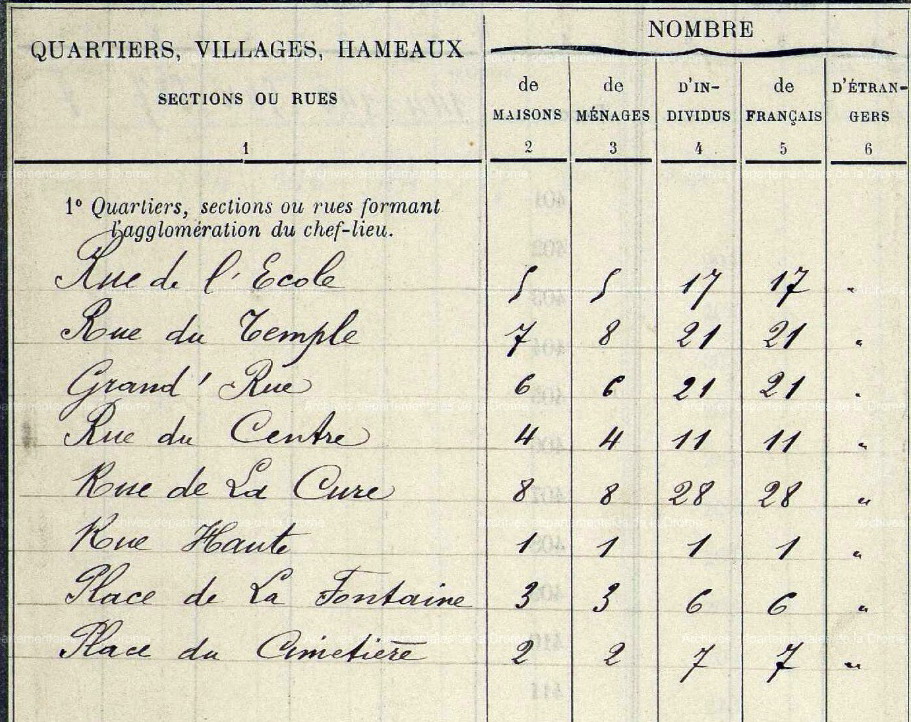 QUARTIERS, VILLAGES, HAMEAUX
SECTIONS OU RUES
1
NOMBRE
de MAISONS 2
de MÉNAGES 3
D'IN-DIVIDUS 4
de FRANÇAIS 5
D'ÉTRAN-GERS 6
1º Quartiers, sections ou rues formant
l'agglomération du chef-lieu.
Rue de l'Ecole 5 5 17 17 "
Rue du Temple 7 8 21 21 "
Grand' Rue 6 6 21 21 "
Rue du Centre 4 4 11 11 "
Rue de La Cure 8 8 28 28 "
Rue Haute 1 1 1 1 "
Place de La Fontaine 3 3 6 6 "
Place du Cimetière 2 2 7 7 "